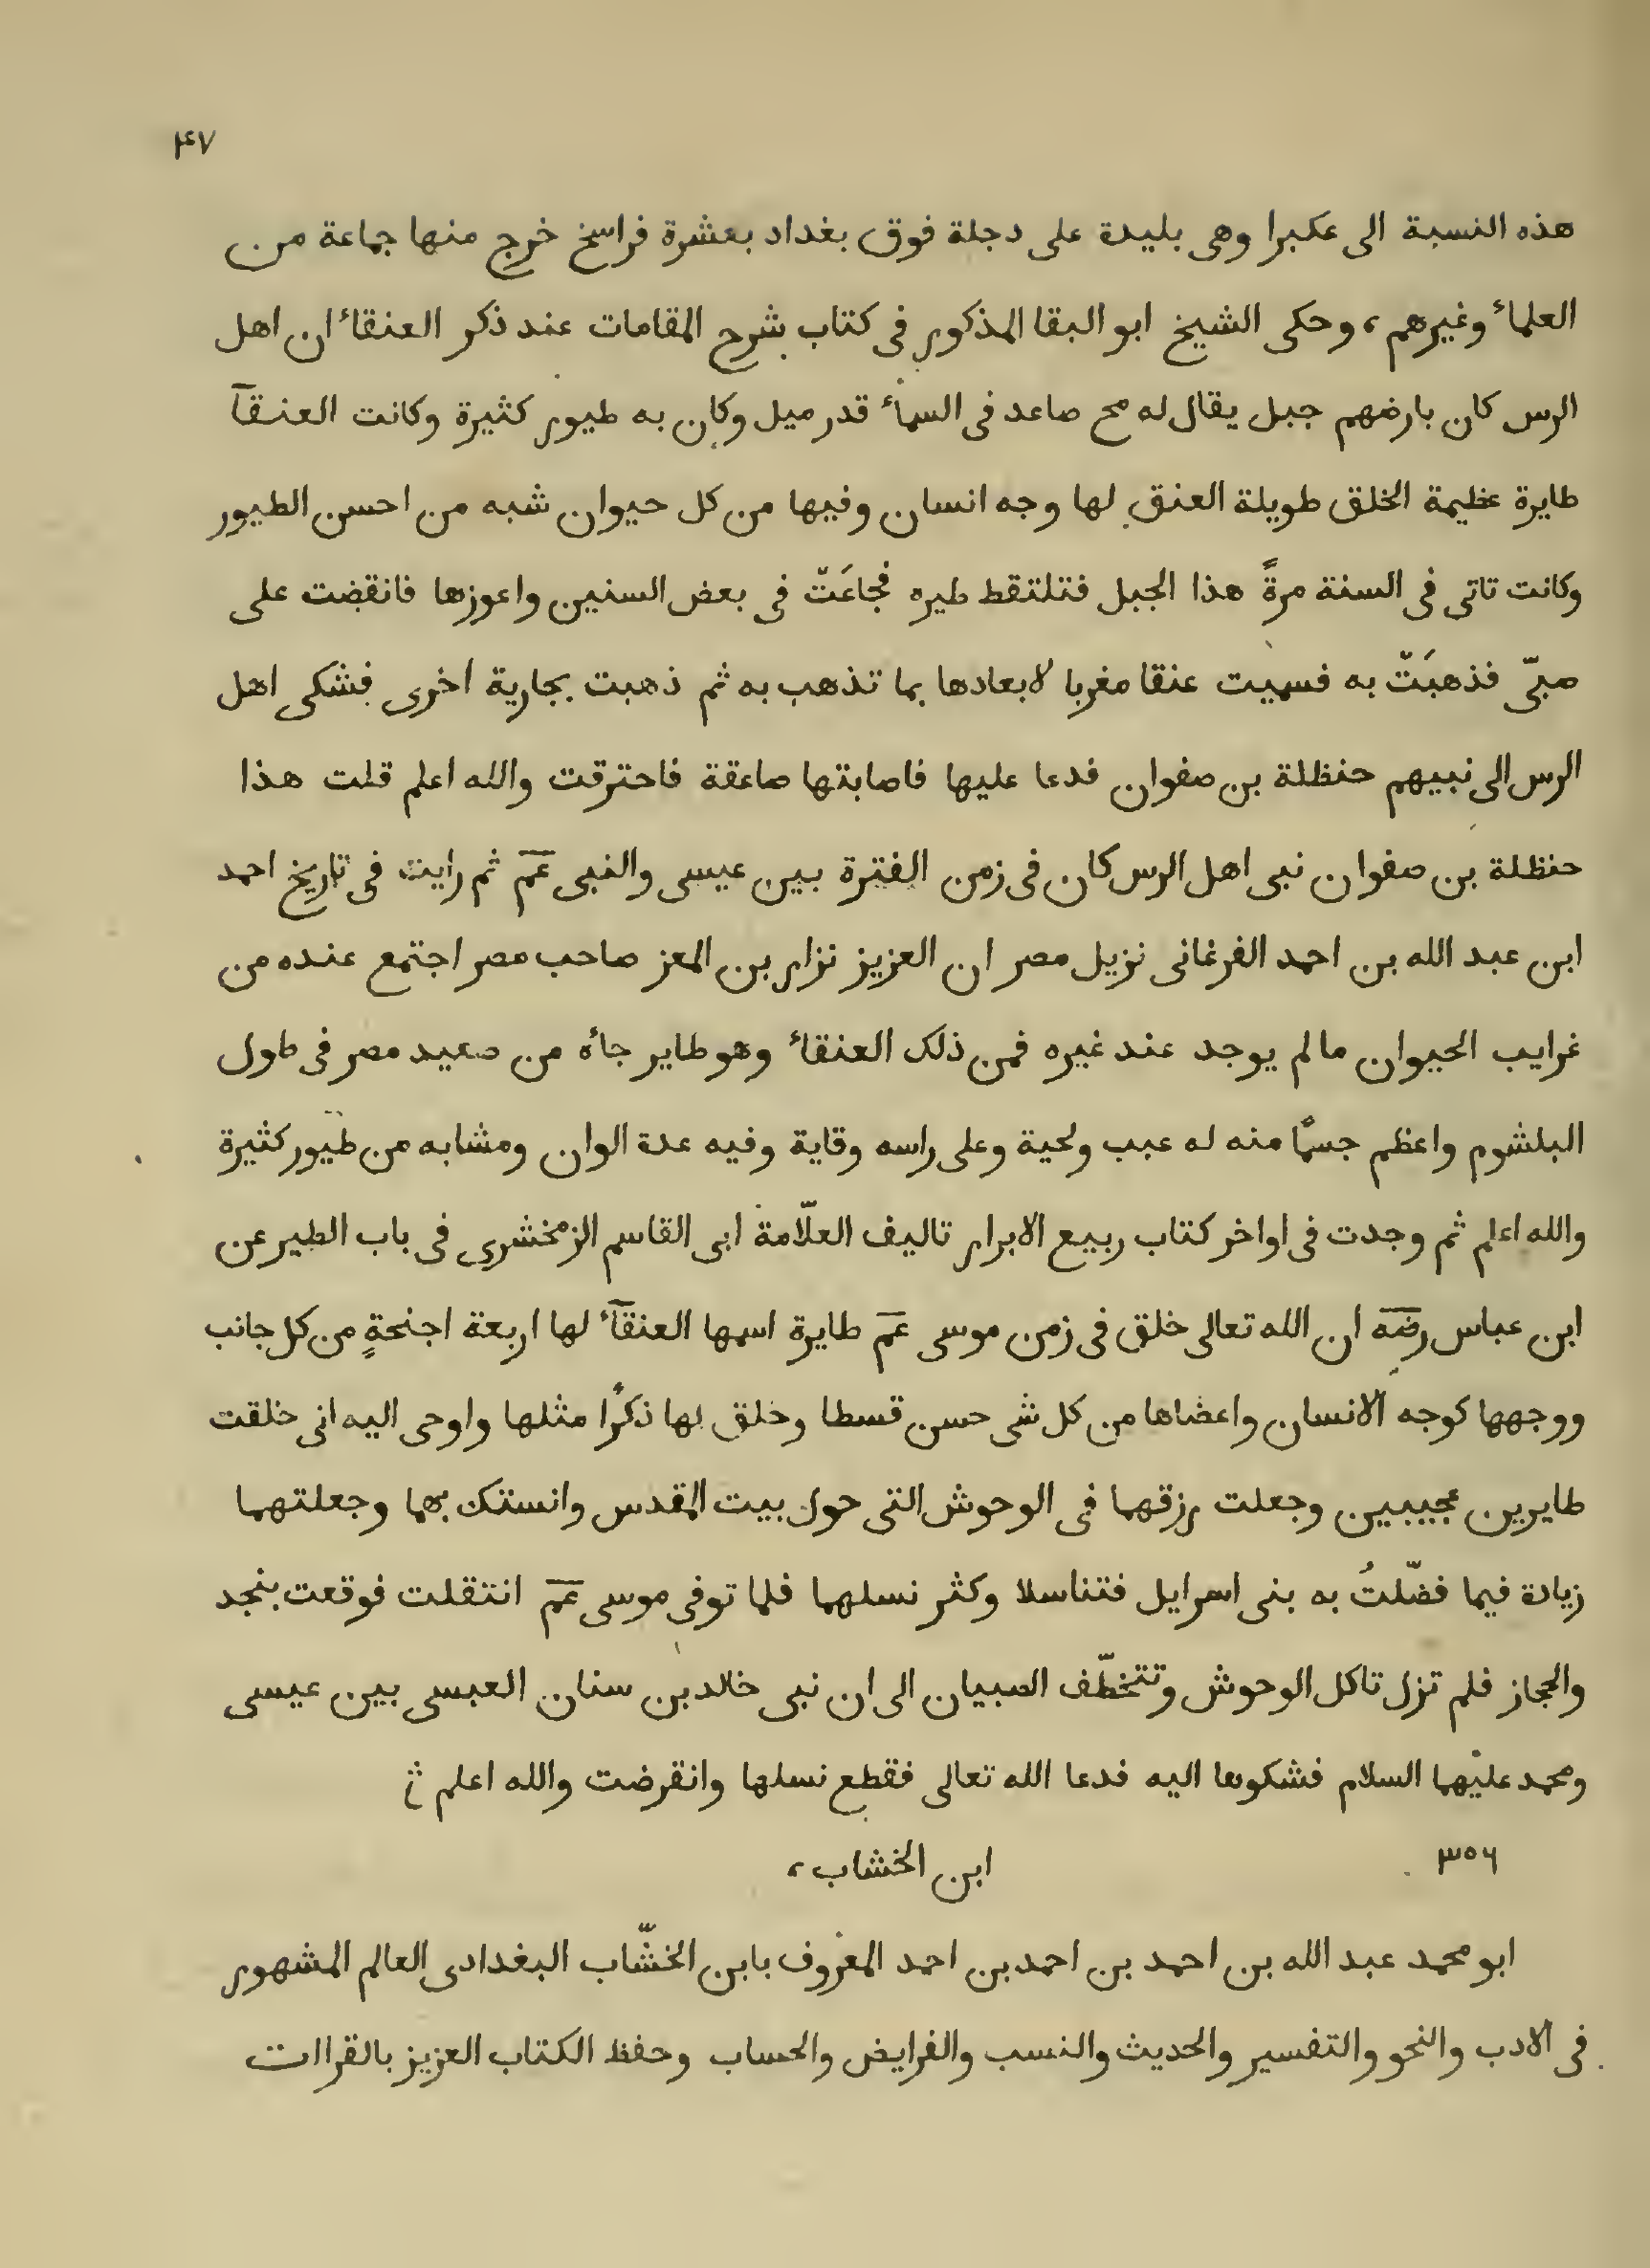 ۴۷
هذه النسبة الى عكبرا وهى بليدة على دجلة فوق بغداد بعشرة فراسخ خرج منها جماعة من
العلماء وغيرهم، وحكى الشيخ ابو البقا المذكور فى كتاب شرح المقامات عند ذكر العنقاء ان اهل
الرس كان بارضهم جبل يقال له مح صاعد فى السماء قدر ميل وكان به طيور كثيرة وكانت العنقآ
طايرة عظيمة الخلق طويلة العنق لها وجه انسان وفيها من كل حيوان شبه من احسن الطيور
وكانت تاتى فى السنة مرةً هذا الجبل فتلتقط طيره فجاعَتْ فى بعض السنين واعوزها فانقضت على
صبىّ فذهبَتْ به فسميت عنقا مغربا لابعادها بما تذهب به ثم ذهبت بجارية اخرى فشكى اهل
الرس الى نبيهم حنظلة بن صفوان فدعا عليها فاصابتها صاعقة فاحترقت والله اعلم قلت هذا
حنظلة بن صفوان نبى اهل الرس كان فى زمن الفترة بين عيسى والنبى عمَ ثم رايت فى تاريخ احمد
ابن عبد الله بن احمد الفرغانى نزيل مصر ان العزيز نزار بن المعز صاحب مصر اجتمع عنده من
غرايب الحيوان ما لم يوجد عند غيره فمن ذلك العنقاء وهو طاير جاءه من صعيد مصر فى طول
البلشوم واعظم جسمًا منه له عبب ولحية وعلى راسه وقاية وفيه عدة الوان ومشابه من طيور كثيرة
والله اعلم ثم وجدت فى اواخر كتاب ربيع الابرار تاليف العلّامة ابى القاسم الزمخشرى فى باب الطير عن
ابن عباس رضَه ان الله تعالى خلق فى زمن موسى عمَ طايرة اسمها العنقآء لها اربعة اجنحةٍ من كل جانب
ووجهها كوجه الانسان واعضاها من كل شى حسن قسطا وخلق لها ذكرًا مثلها واوحى اليه انى خلقت
طايرين عجيبين وجعلت رزقهما فى الوحوش التى حول بيت المقدس وانستك بهما وجعلتهما
زيادة فيما فضّلتُ به بنى اسرايل فتناسلا وكثر نسلهما فلما توفى موسى عمَ انتقلت فوقعت بنجد
والحجاز فلم تزل تاكل الوحوش وتتخطّف الصبيان الى ان نبى خالد بن سنان العبسى بين عيسى
ومحمد عليهما السلام فشكوها اليه فدعا الله تعالى فقطع نسلها وانقرضت والله اعلم
۳٥٦
ابن الخشاب،
ابو محمد عبد الله بن احمد بن احمد بن احمد المعروف بابن الخشّاب البغدادى العالم المشهور
فى الادب والنحو والتفسير والحديث والنسب والفرايض والحساب وحفظ الكتاب العزيز بالقراات